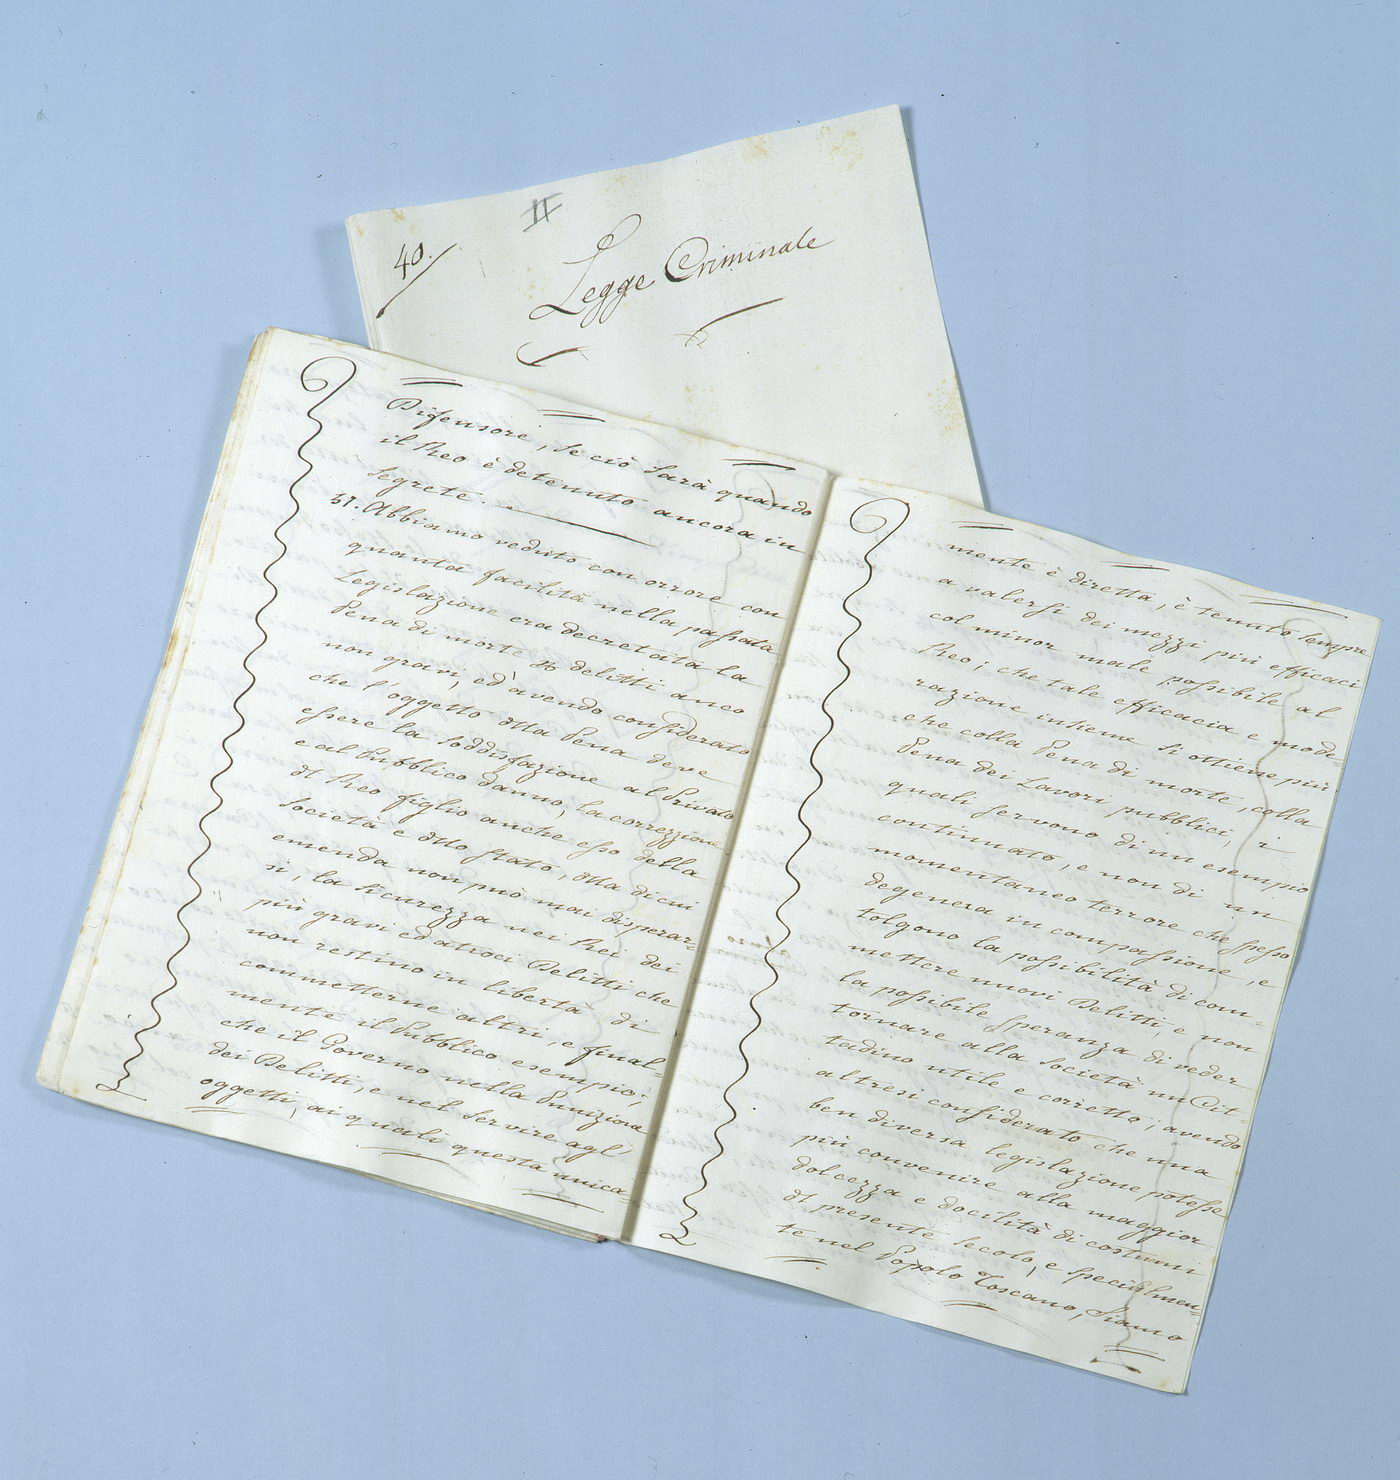 40.
II
Legge Criminale
Difensore, se ciò sarà quando
il Reo è detenuto ancora in
segrete.
51. Abbiamo veduto con orrore con
quanta facilità nella passata
Legislazione era decretata la
Pena di morte delitti anco
non gravi, ed avendo considerato
che l'oggetto della Pena deve
essere la soddisfazione al Privato
e al Pubblico danno, la correzzione
del Reo figlio anche esso della
Società e dello stato, della di cui
emenda non può mai disperar=
si, la sicurezza nei Rei dei
più gravi ed atroci Delitti che
non restino in libertà di
commetterne altri, e final=
mente il Pubblico esempio;
che il Governo nella Punizione
dei Delitti, e nel servire agl'
oggetti, ai quali questa unica=
mente è diretta, è tenuto sempre
a valersi dei mezzi più efficaci
col minor male possibile al
Reo; che tale efficacia e mode=
razione insieme si ottiene più
che colla Pena di morte, colla
Pena dei Lavori pubblici, i
quali servono di un esempio
continuato, e non di un
momentaneo terrore che spesso
degenera in compassione, e
tolgono la possibilità di com=
mettere nuovi Delitti, e non
la possibile speranza di veder
tornare alla società un Cit=
tadino utile e corretto; avendo
altresì considerato che una
ben diversa legislazione potesse
più convenire alla maggior
dolcezza e docilità di costumi
del presente secolo, e specialmen=
te nel Popolo Toscano, Siamo